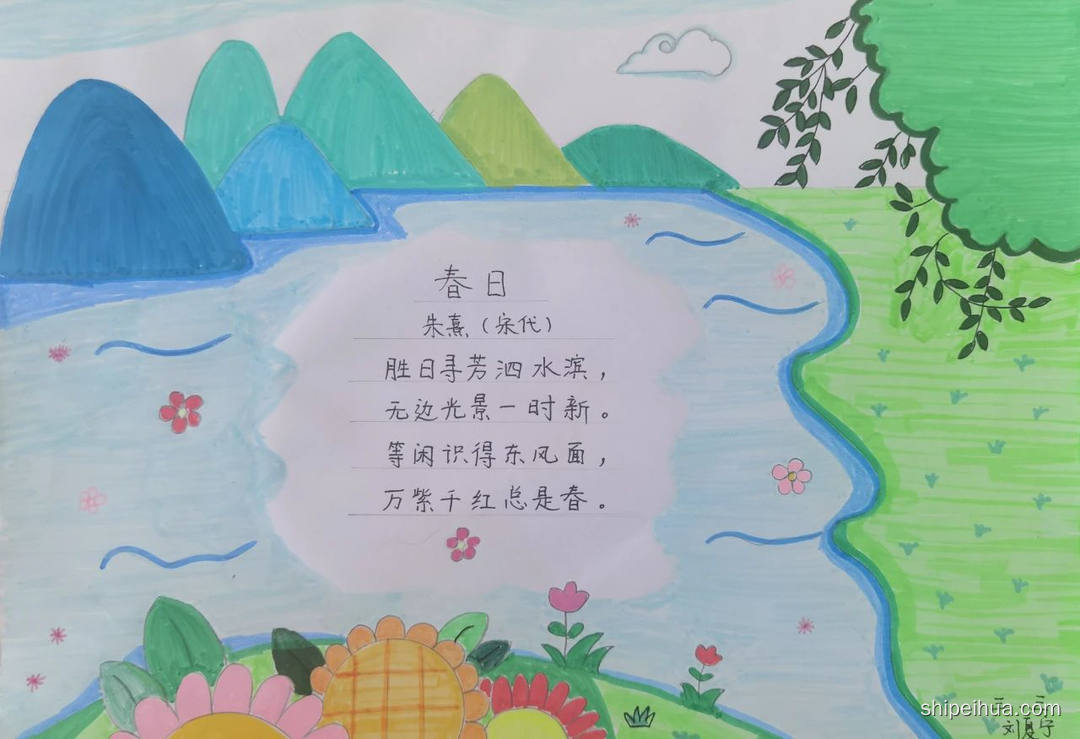 春日
朱熹（宋代）
胜日寻芳泗水滨，
无边光景一时新。
等闲识得东风面，
万紫千红总是春。
shipeihua.com